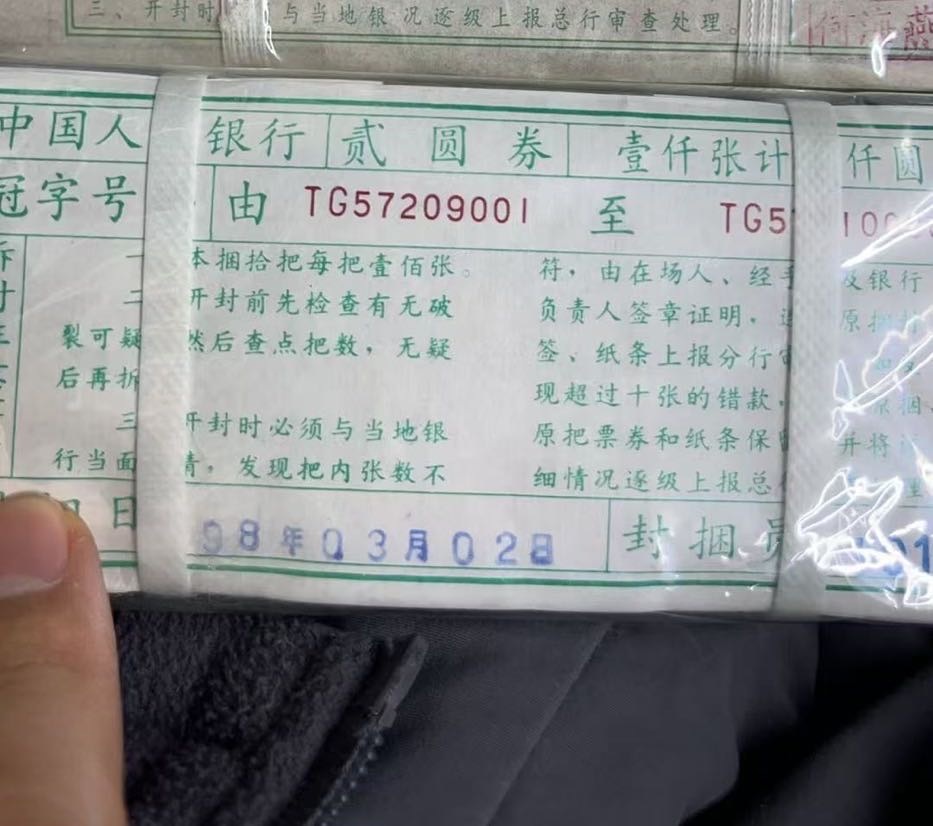 三、开封时 与当地银 况逐级上报总行审查处理。
中国人 银行 贰圆券 壹仟张计 仟圆
冠字号 由 TG57209001 至 TG5 100
一 本捆拾把每把壹佰张。
二 开封前先检查有无破
裂可疑 然后查点把数,无疑
后再拆
三 开封时必须与当地银
行当面 清,发现把内张数不
符,由在场人、经手 及银行
负责人签章证明,连 原捆封
签、纸条上报分行审
现超过十张的错款, 原捆
原把票券和纸条保留 并将
细情况逐级上报总 理
日 98年03月02日 封捆员 01